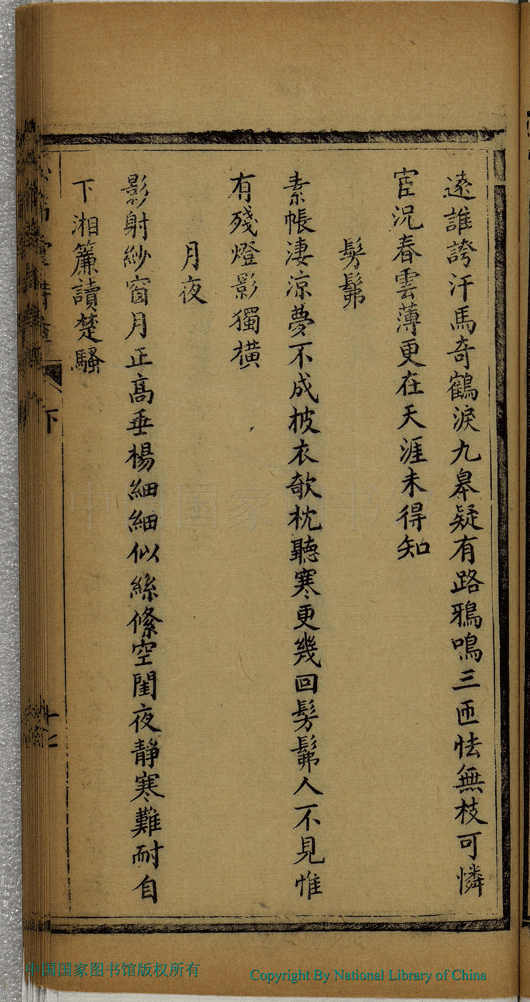 遠誰誇汗馬奇鶴淚九皋疑有路鴉鳴三匝怯無枝可憐
宦況春雲薄更在天涯未得知
髣髴
素帳淒涼夢不成披衣欹枕聽寒更幾回髣髴人不見惟
有殘燈影獨橫
月夜
影射紗窗月正高垂楊細細似絲絛空閨夜靜寒難耐自
下湘簾讀楚騷
下
中国国家图书馆版权所有
Copyright By National Library of China